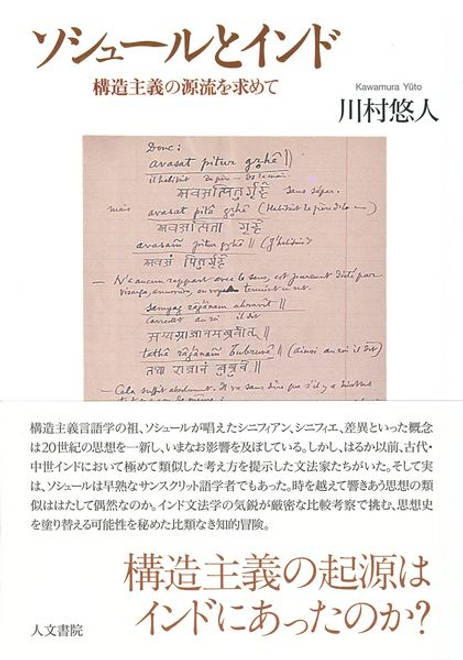 ソシュールとインド
構造主義の源流を求めて
Kawamura Yūto
川村悠人
Donc:
avasat pitur gṛhe ||
il habitait
अवसत्पितुर्गृहे sans sépar.
mais avasat pitā gṛhe (Habitait le père
अवसत्पिता गृहे
avasam pitur gṛhe || (J'habitais
अवसं पितुर्गृहे
— N'a aucun rapport avec le sens, est purement dicté par
visarga, anusvāra, ou voyelle terminant un mot.
samyag rājānam abravīt ||
correctement au roi il dit
सम्यग्राजानमब्रवीत् ||
tathā rājānam (ainsi au roi il dit)
तथा राजानं
— Cela suffit absolument. Il va sans dire que s'il y a
構造主義言語学の祖、ソシュールが唱えたシニフィアン、シニフィエ、差異といった概念
は20世紀の思想を一新し、いまなお影響を及ぼしている。しかし、はるか以前、古代・
中世インドにおいて極めて類似した考え方を提示した文法家たちがいた。そして実
は、ソシュールは早熟なサンスクリット語学者でもあった。時を越えて響きあう思想の類
似ははたして偶然なのか。インド文法学の気鋭が厳密な比較考察で挑む、思想史
を塗り替える可能性を秘めた比類なき知的冒険。
構造主義の起源は
インドにあったのか?
人文書院